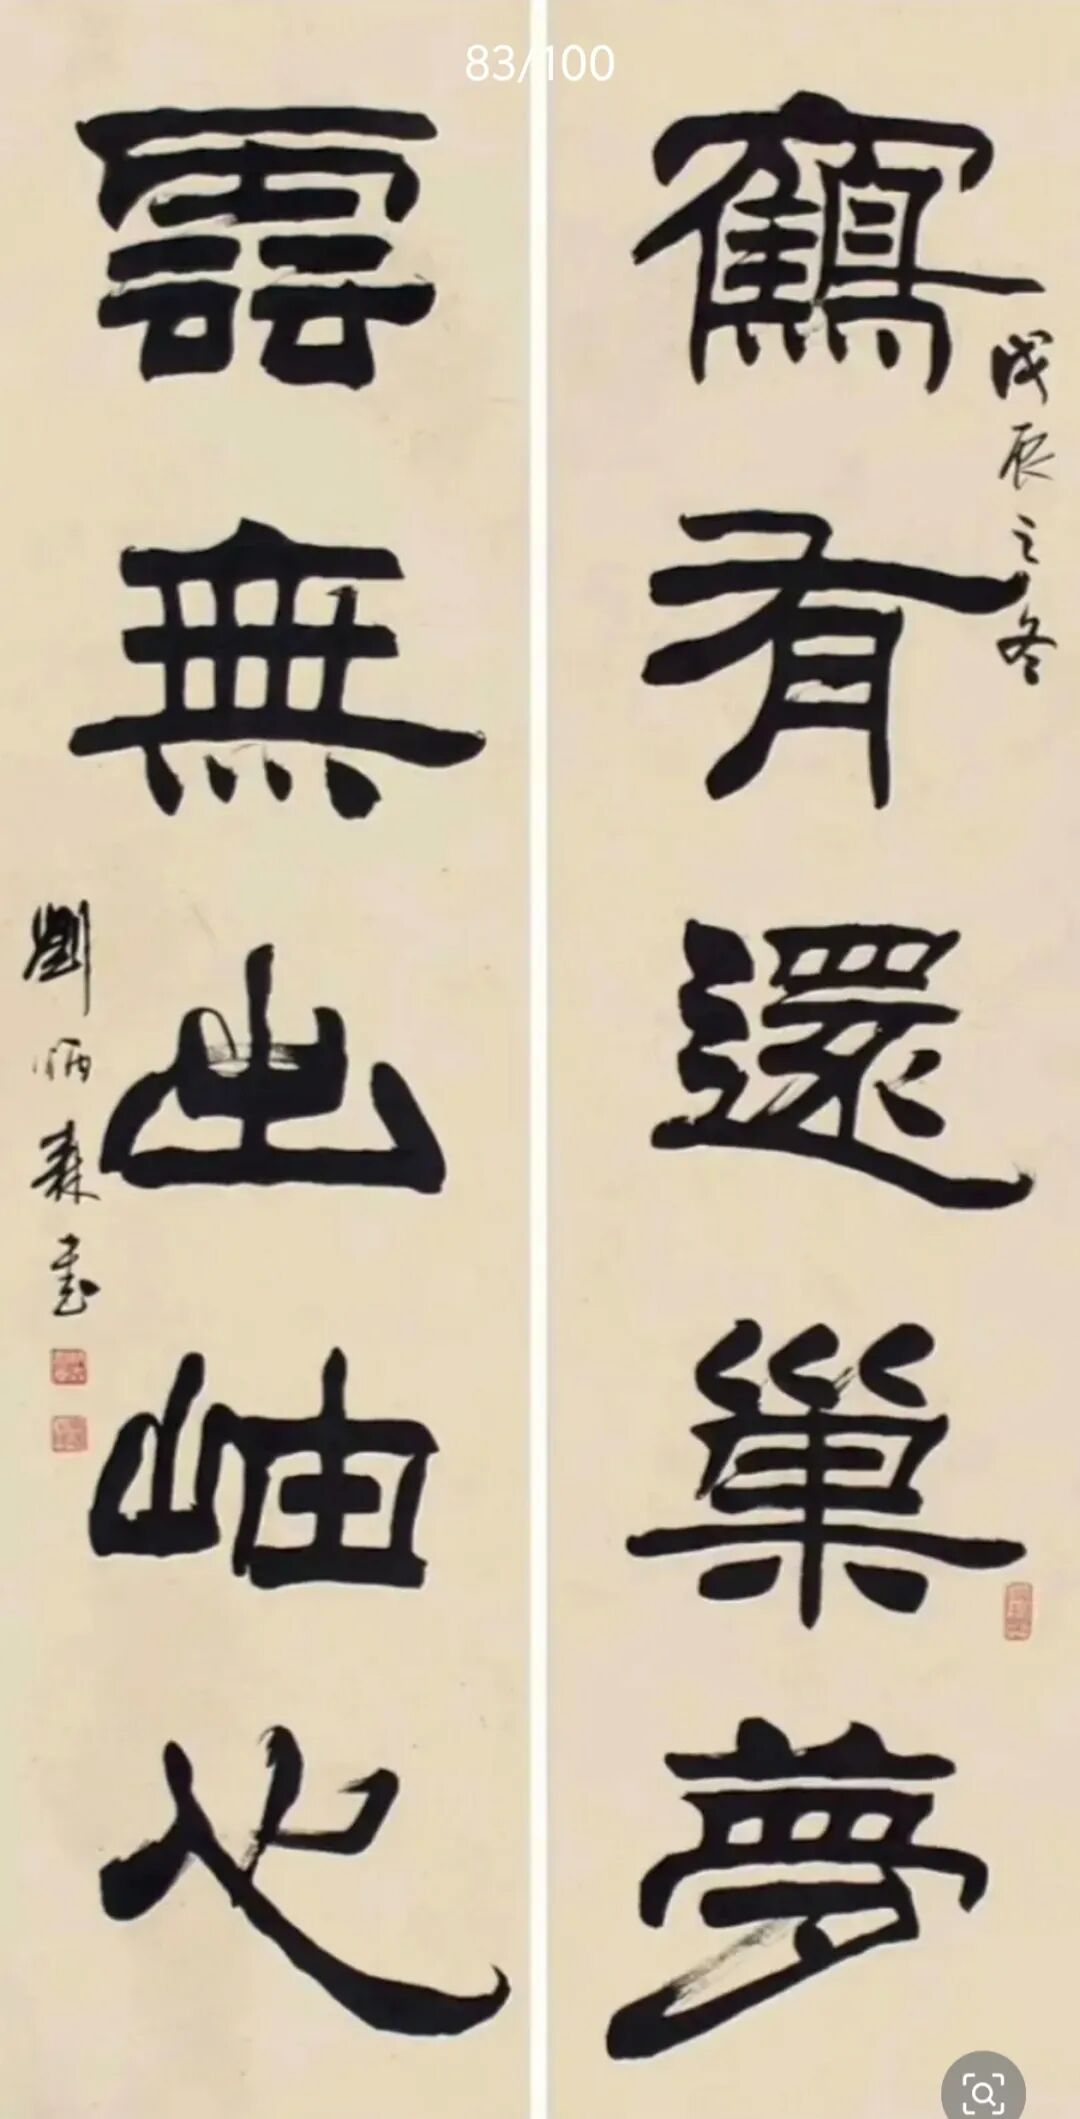 83/100
鶴有還巢夢
戊辰之冬
雲無出岫心
劉炳森書